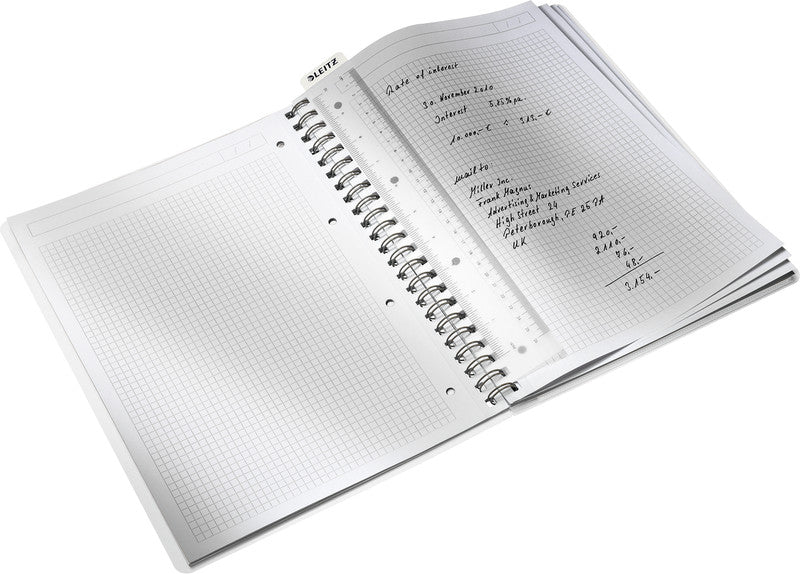 LEITZ
Rate of interest
30. November 2010
Interest 5.15% pa.
10.000,-€ ÷ 515,-€
mail to:
Miller Inc.
Frank Magnus
Advertising & Marketing Services
High Street 24
Peterborough, PE 25 PA
UK
920,-
2.110,-
76,-
48,-
3.154,-